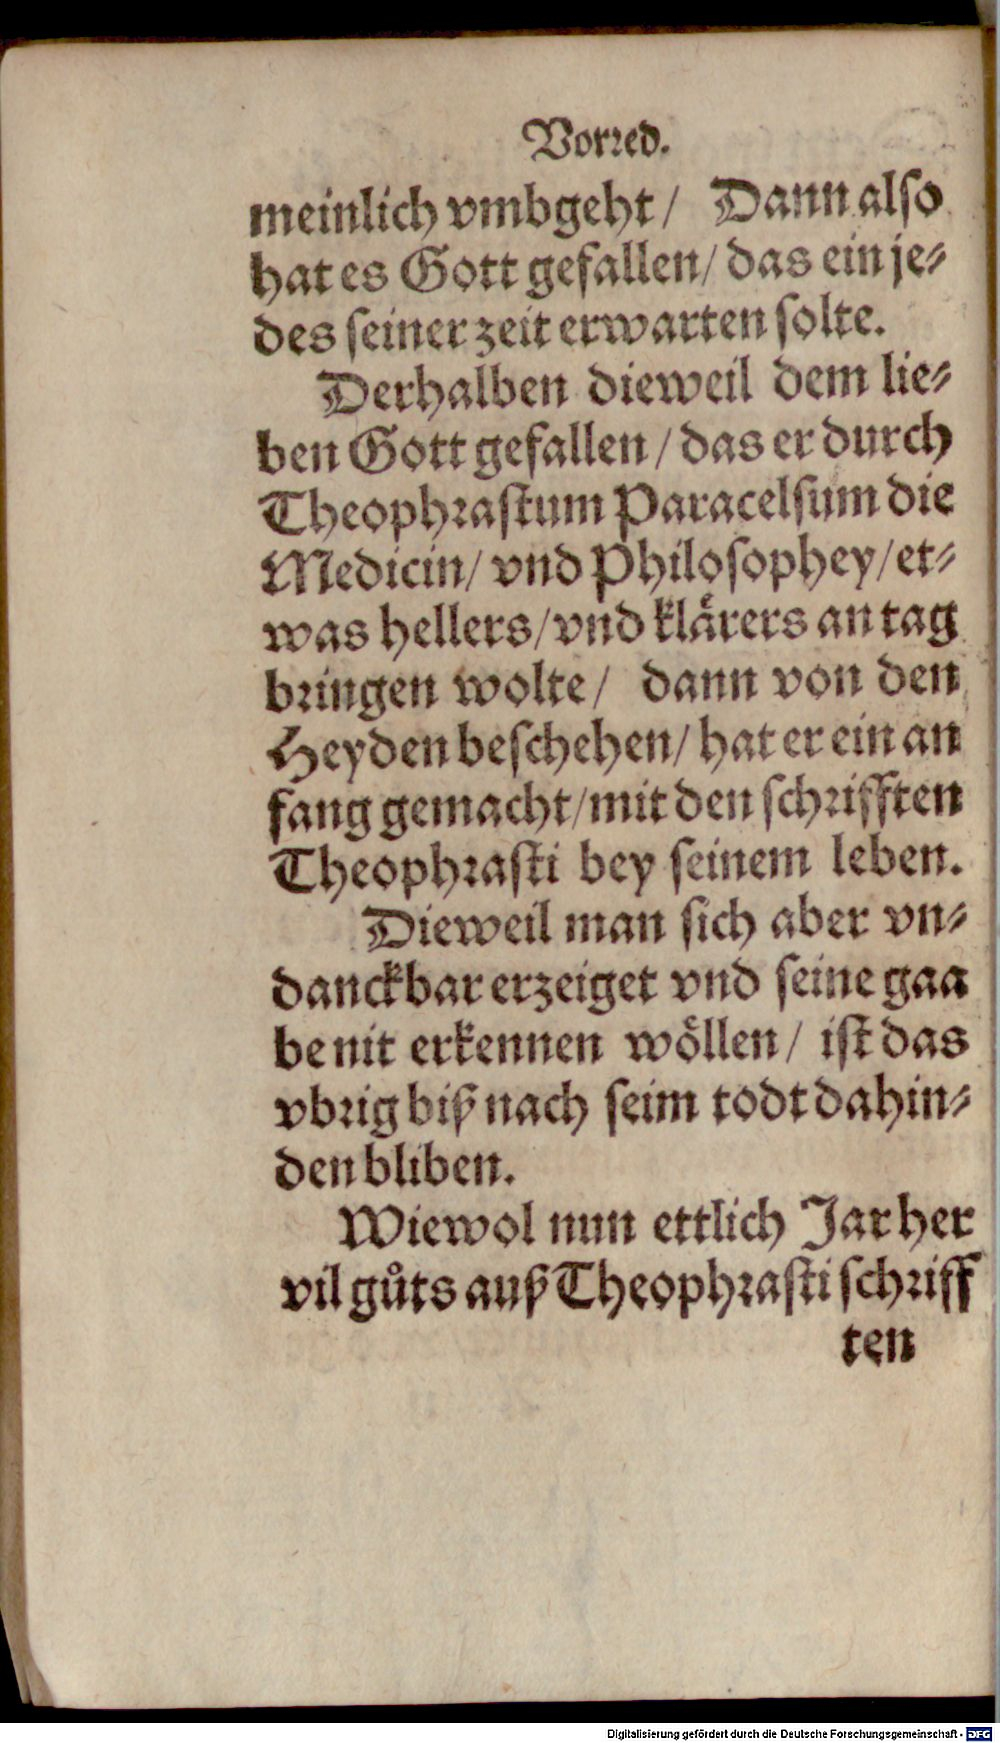 Vorꝛed.
meinlich vmbgeht / Dann alſo
hat es Gott gefallen / das ein je⸗
des ſeiner zeit erwarten ſolte.
Derhalben dieweil dem lie⸗
ben Gott gefallen / das er durch
Theophꝛaſtum Paracelſum die
Medicin / vnd Philoſophey / et⸗
was hellers / vnd klaͤrers an tag
bꝛingen wolte / dann von den
Heyden beſchehen / hat er ein an
fang gemacht / mit den ſchꝛifften
Theophꝛaſti bey ſeinem leben.
Dieweil man ſich aber vn⸗
danckbar erzeiget vnd ſeine gaa
be nit erkennen woͤllen / iſt das
vbꝛig biß nach ſeim todt dahin⸗
den bliben.
Wiewol nun ettlich Jar her
vil guͦts auß Theophꝛaſti ſchꝛiff
ten
Digitalisierung gefördert durch die Deutsche Forschungsgemeinschaft - DFG